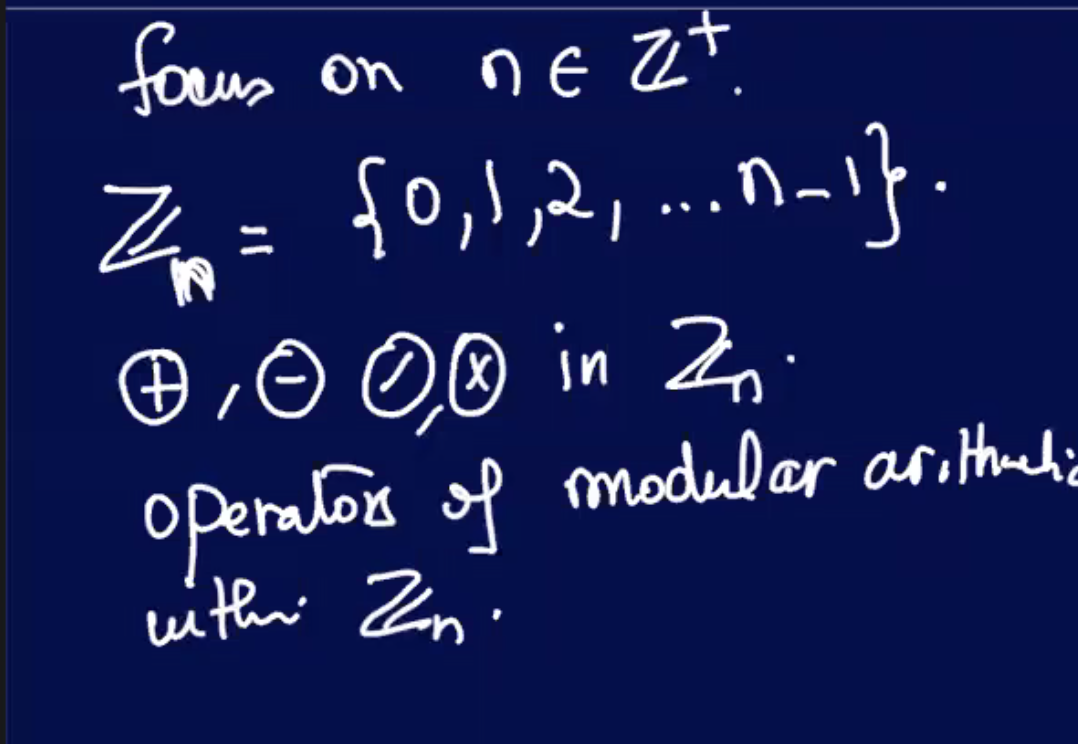 focus on n ∈ ℤ⁺.
ℤₙ = {0,1,2, ...n-1}.
⊕, ⊖ ⊘, ⊗ in ℤₙ.
operators of modular
within ℤₙ.